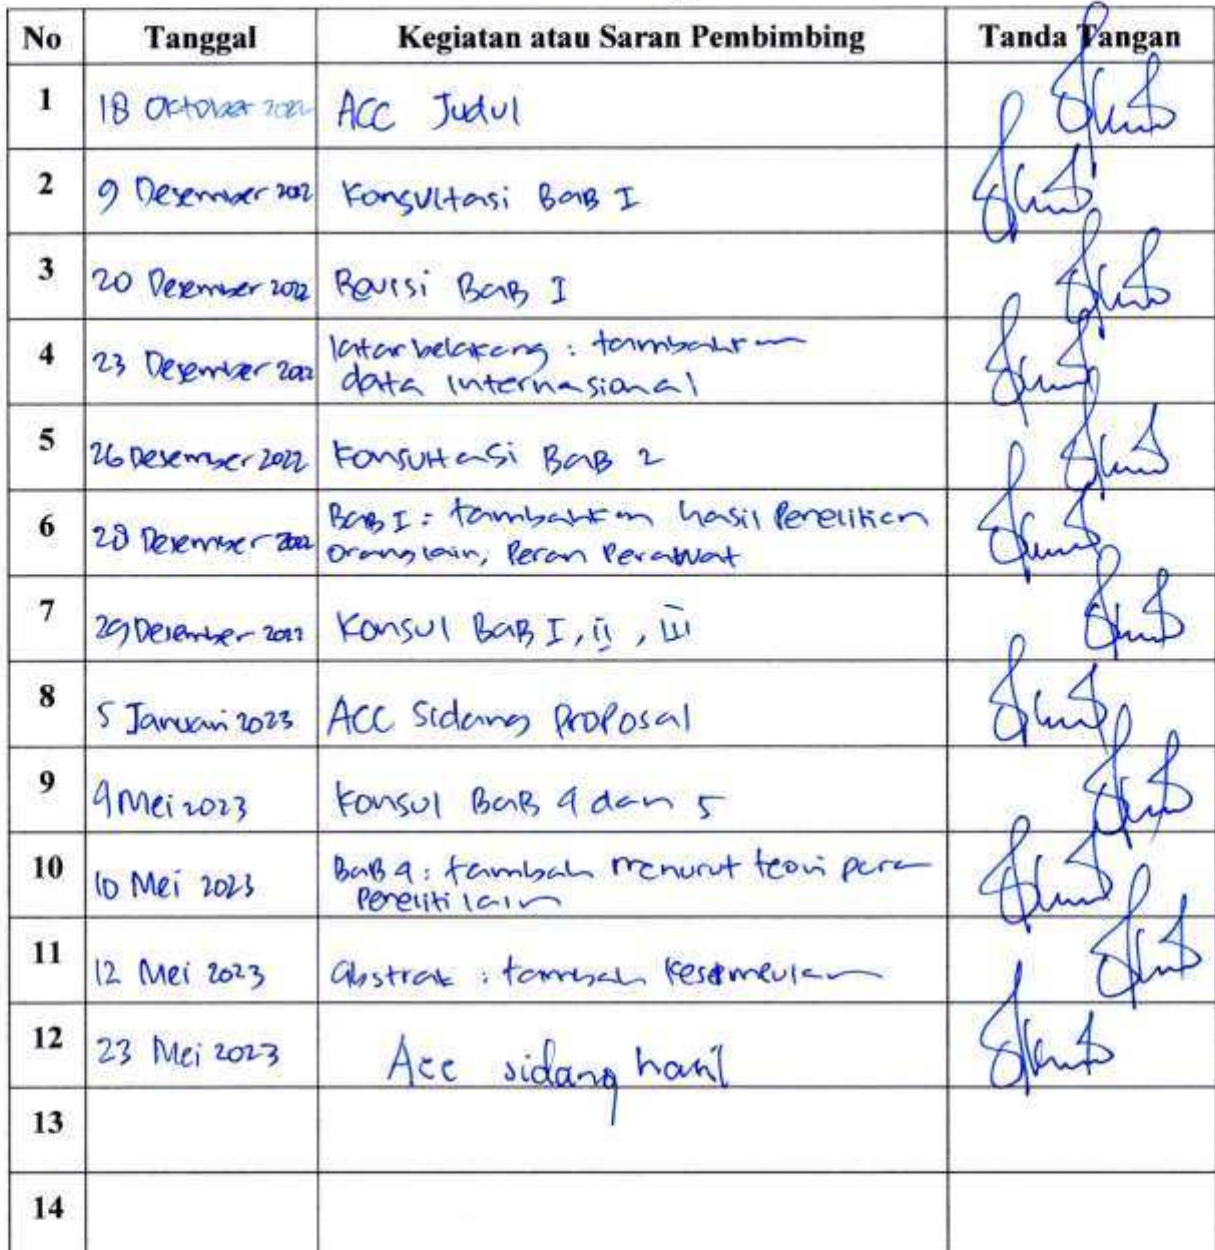 No Tanggal Kegiatan atau Saran Pembimbing Tanda Tangan
1 18 Oktober 2022 ACC Judul
2 9 Desember 2022 Konsultasi BAB I
3 20 Desember 2022 Revisi BAB I
4 23 Desember 2022 latar belakang : tambahkan
data internasional
5 26 Desember 2022 Konsultasi BAB 2
6 28 Desember 2022 BAB I : tambahkan hasil Penelitian
orang lain, Peran Perawat
7 29 Desember 2022 Konsul BAB I, II, III
8 5 Januari 2023 ACC Sidang Proposal
9 9 Mei 2023 Konsul BAB 4 dan 5
10 10 Mei 2023 BAB 4 : tambah menurut teori para
Peneliti lain
11 12 Mei 2023 abstrak : tambah Kesimpulan
12 23 Mei 2023 Acc sidang hasil
13
14